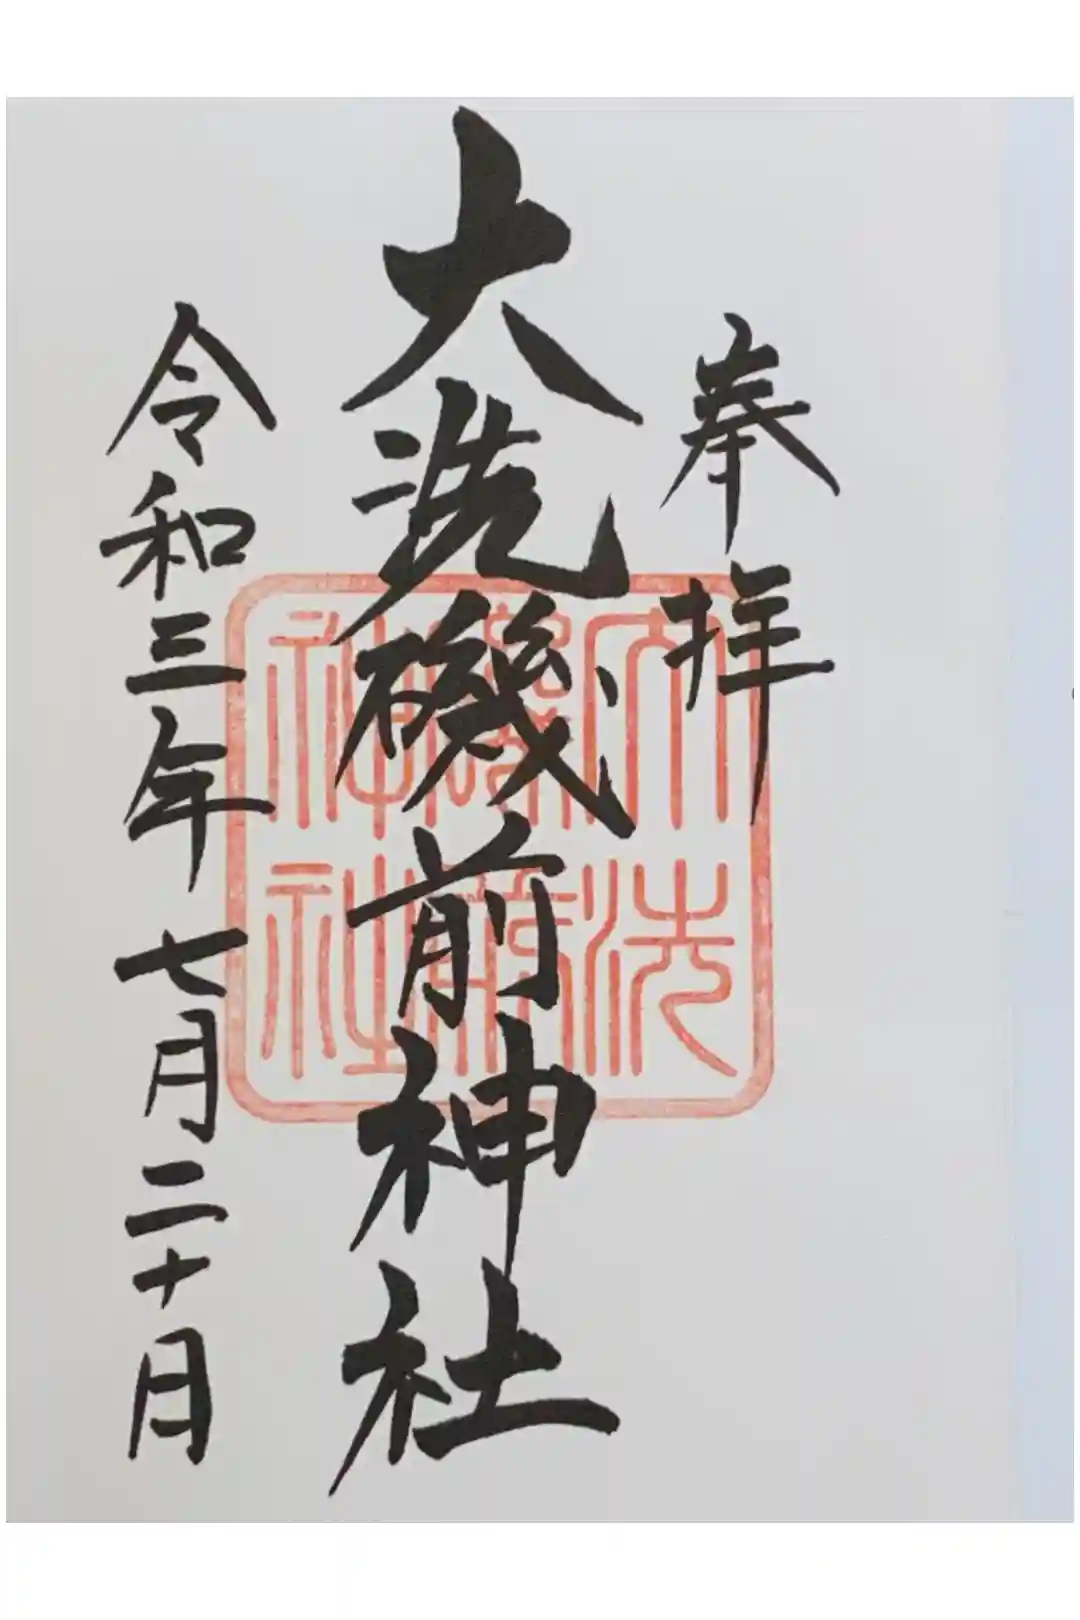 奉拝
大洗磯前神社
令和三年七月二十日
大洗
磯前
神社